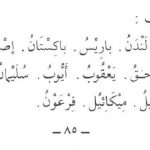 ف :
لَنْدَنُ . بَارِيْسُ . بَاكِسْتَانُ . إِصْ
حٰقُ . يَعْقُوْبُ . أَيُّوْبُ . سُلَيْمَانُ
يْلُ . مِيْكَائِيْلُ . فِرْعَوْنُ .
– ٨٥ –